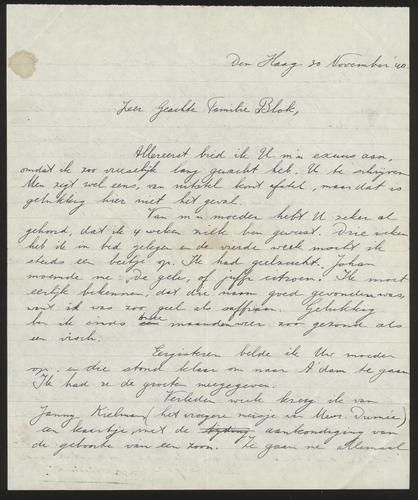 Den Haag 20 November '40.
Zeer Geachte Familie Blok,
Allereerst bied ik U m'n excuus aan,
omdat ik zoo vreselijk lang gewacht heb. U te schrijven
Men zegt wel eens, van uitstel komt afstel, maar dat is
gelukkig hier niet het geval.
Van m'n moeder hebt U zeker al
gehoord, dat ik 4 weken ziek ben geweest. Drie weken
heb ik in bed gelegen en de vierde week mocht ik
steeds een beetje op. Ik had geelzucht. Johan
noemde me: De gele, of juffr. citroen. Ik moet
eerlijk bekennen, dat die naam goed gevonden was,
want ik was zoo geel als saffraan. Gelukkig
ben ik sinds twee maanden weer zoo gezond als
een visch.
Eergisteren belde ik Uw moeder
op, en die stond klaar om naar A'dam te gaan
Ik had ze de groeten meegegeven.
Verleden week kreeg ik van
Janny Kielman (het vroegere meisje van Mevr.
een kaartje met de aankondiging van
de geboorte van een zoon. Ze gaan ne allemaal